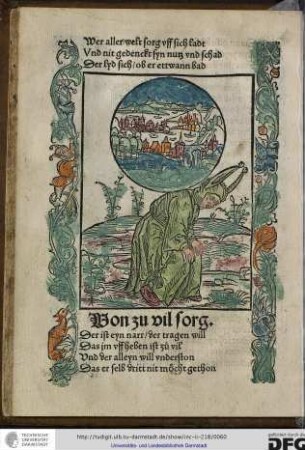 Wer aller welt sorg vff sich ladt
Vnd nit gedenckt syn nutz vnd schad
Der lyd sich / ob er ettwann bad
Von zu vil sorg.
Der ist eyn narr / der tragen will
Das im vff heben ist zů vil
Vnd der alleyn will vnderston
Das er selb dritt nit möcht gethon
TECHNISCHE
UNIVERSITÄT
DARMSTADT
http://tudigit.ulb.tu-darmstadt.de/show/inc-ii-218/0060
Universitäts- und Landesbibliothek Darmstadt
gefördert durch die
DFG